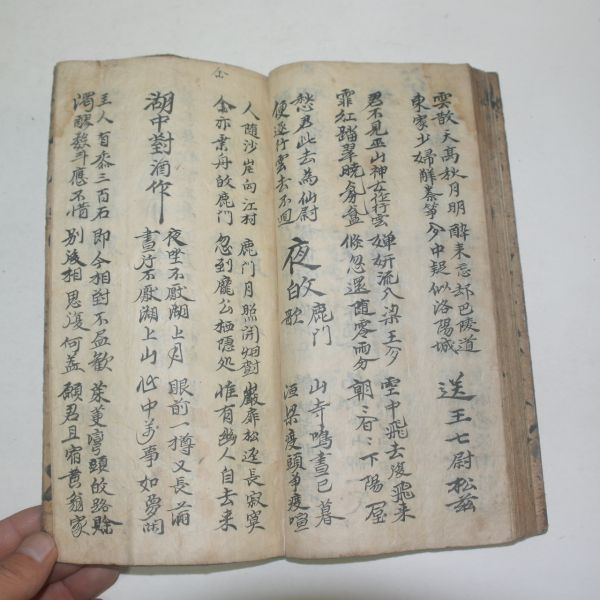 雲散天高秋月明 醉来忘却巴陵道
東家少婦解秦箏 夢中疑似洛陽城
送王七尉松茲
君不見巫山神女作行雲 嬋姸流入梁王夢 空中飛去復飛来
霏紅踏翠曉氛氳 倏忽還随零雨分 朝〻暮〻下陽屋
愁君此去為仙尉
便逐行雲去不回
夜皈鹿門歌 山寺鳴晝已暮
洹梁渡頭爭渡喧
人随沙岸向江村 鹿門月照開烟樹 巖扉松逕長寂寞
余亦乗舟皈鹿門 忽到龐公栖隱処 惟有幽人自去来
湖中對酒作
夜坐不厭湖上月 眼前一樽又長滿
晝行不厭湖上山 心中万事如夢閑
主人有黍三百石 即今相對不盡歡 茱萸彎頭皈路賖
濁醪數斗應不惜 別後相思復何益 願君且宿黃翁家